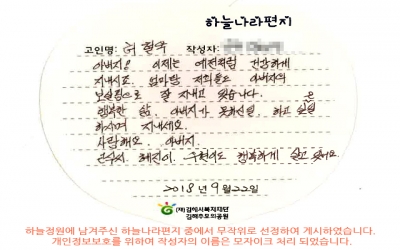 하늘나라편지
고인명: 허 작성자:
아버지! 이제는 예전처럼 건강하게
지내시죠. 엄마랑 저희들도 아버지의
보살핌으로 잘 지내고 있습니다.
행복한 삶, 아버지가 못하신일, 하고 싶은일
하시며 지내세요.
사랑해요. 아버지.
행복하게 살고 있어요.
2018년 9월 22일
(재)김해시복지재단
김해추모의공원
하늘정원에 남겨주신 하늘나라편지 중에서 무작위로 선정하여 게시하였습니다.
개인정보보호를 위하여 작성자의 이름은 모자이크 처리 되었습니다.